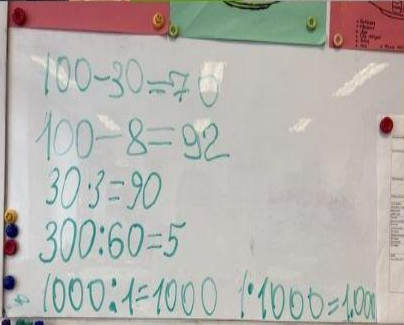 100-30=70
100-8=92
30:3=90
300:60=5
1000:1=1000 1·1000=1.000